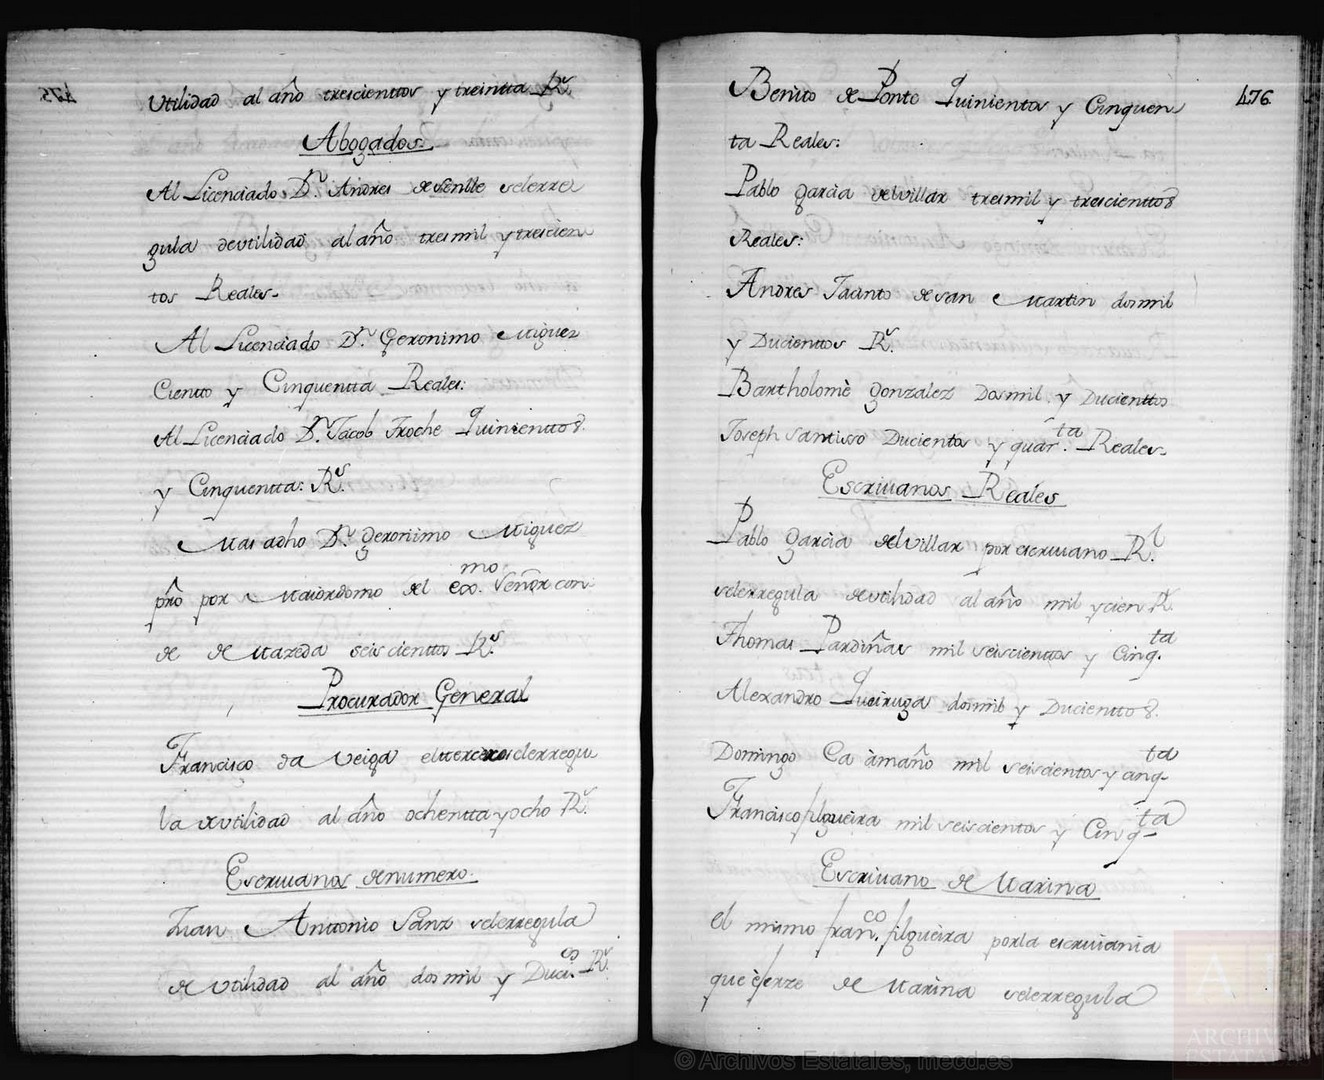 Utilidad al año trescienttos y treintta R.s
Abogados.
Al Licenciado D.n Andres de Senlle selerre
gula deutilidad al año tres mil y trescien
tos Reales.
Al Licenciado D.n Geronimo Miguez
Cientto y Cinquentta Reales:
Al Licenciado D.n Jacob Troche Quinienttos
y Cinquentta: R.s
Mas adho D.n Geronimo Miguez
pro por Maiordomo del exc.mo Señor con
de de Mazeda seis cienttos R.s
Procurador General
Francisco da Veiga el tercero selerregu
la deutilidad al año ochentta y ocho R.s
Escriuanos de numero.
Juan Anttonio Sanz selerregula
de Utilidad al año dos mil y Duci.os R.s
476
Benito de Ponte Quinientos y Cinquen
ta Reales:
Pablo garcia delvillar tres mil y trescienttos
Reales:
Andres Jacinto de san Martin dos mil
y Ducienttos R.s
Bartholomè gonzalez Dos mil y Ducienttos
Joseph Santisso Ducientos y quar.ta Reales.
Escriuanos Reales
Pablo garcia del Villar por escriuano R.l
selerregula deutilidad al año mil y cien R.s
Thomas Pardiñas mil seiscienttos y Cinq.ta
Alexandro Queiruga dos mil y Ducienttos.
Domingo Caamaño mil seiscientos y cinq.ta
Francisco filgueira mil seiscientos y Cinq.ta
Escriuano de Marina
el mismo fran.co filgueira por la escriuania
que èjerze de Marina selerregula
© Archivos Estatales, mecd.es
ARCHIVOS
ESTATALES